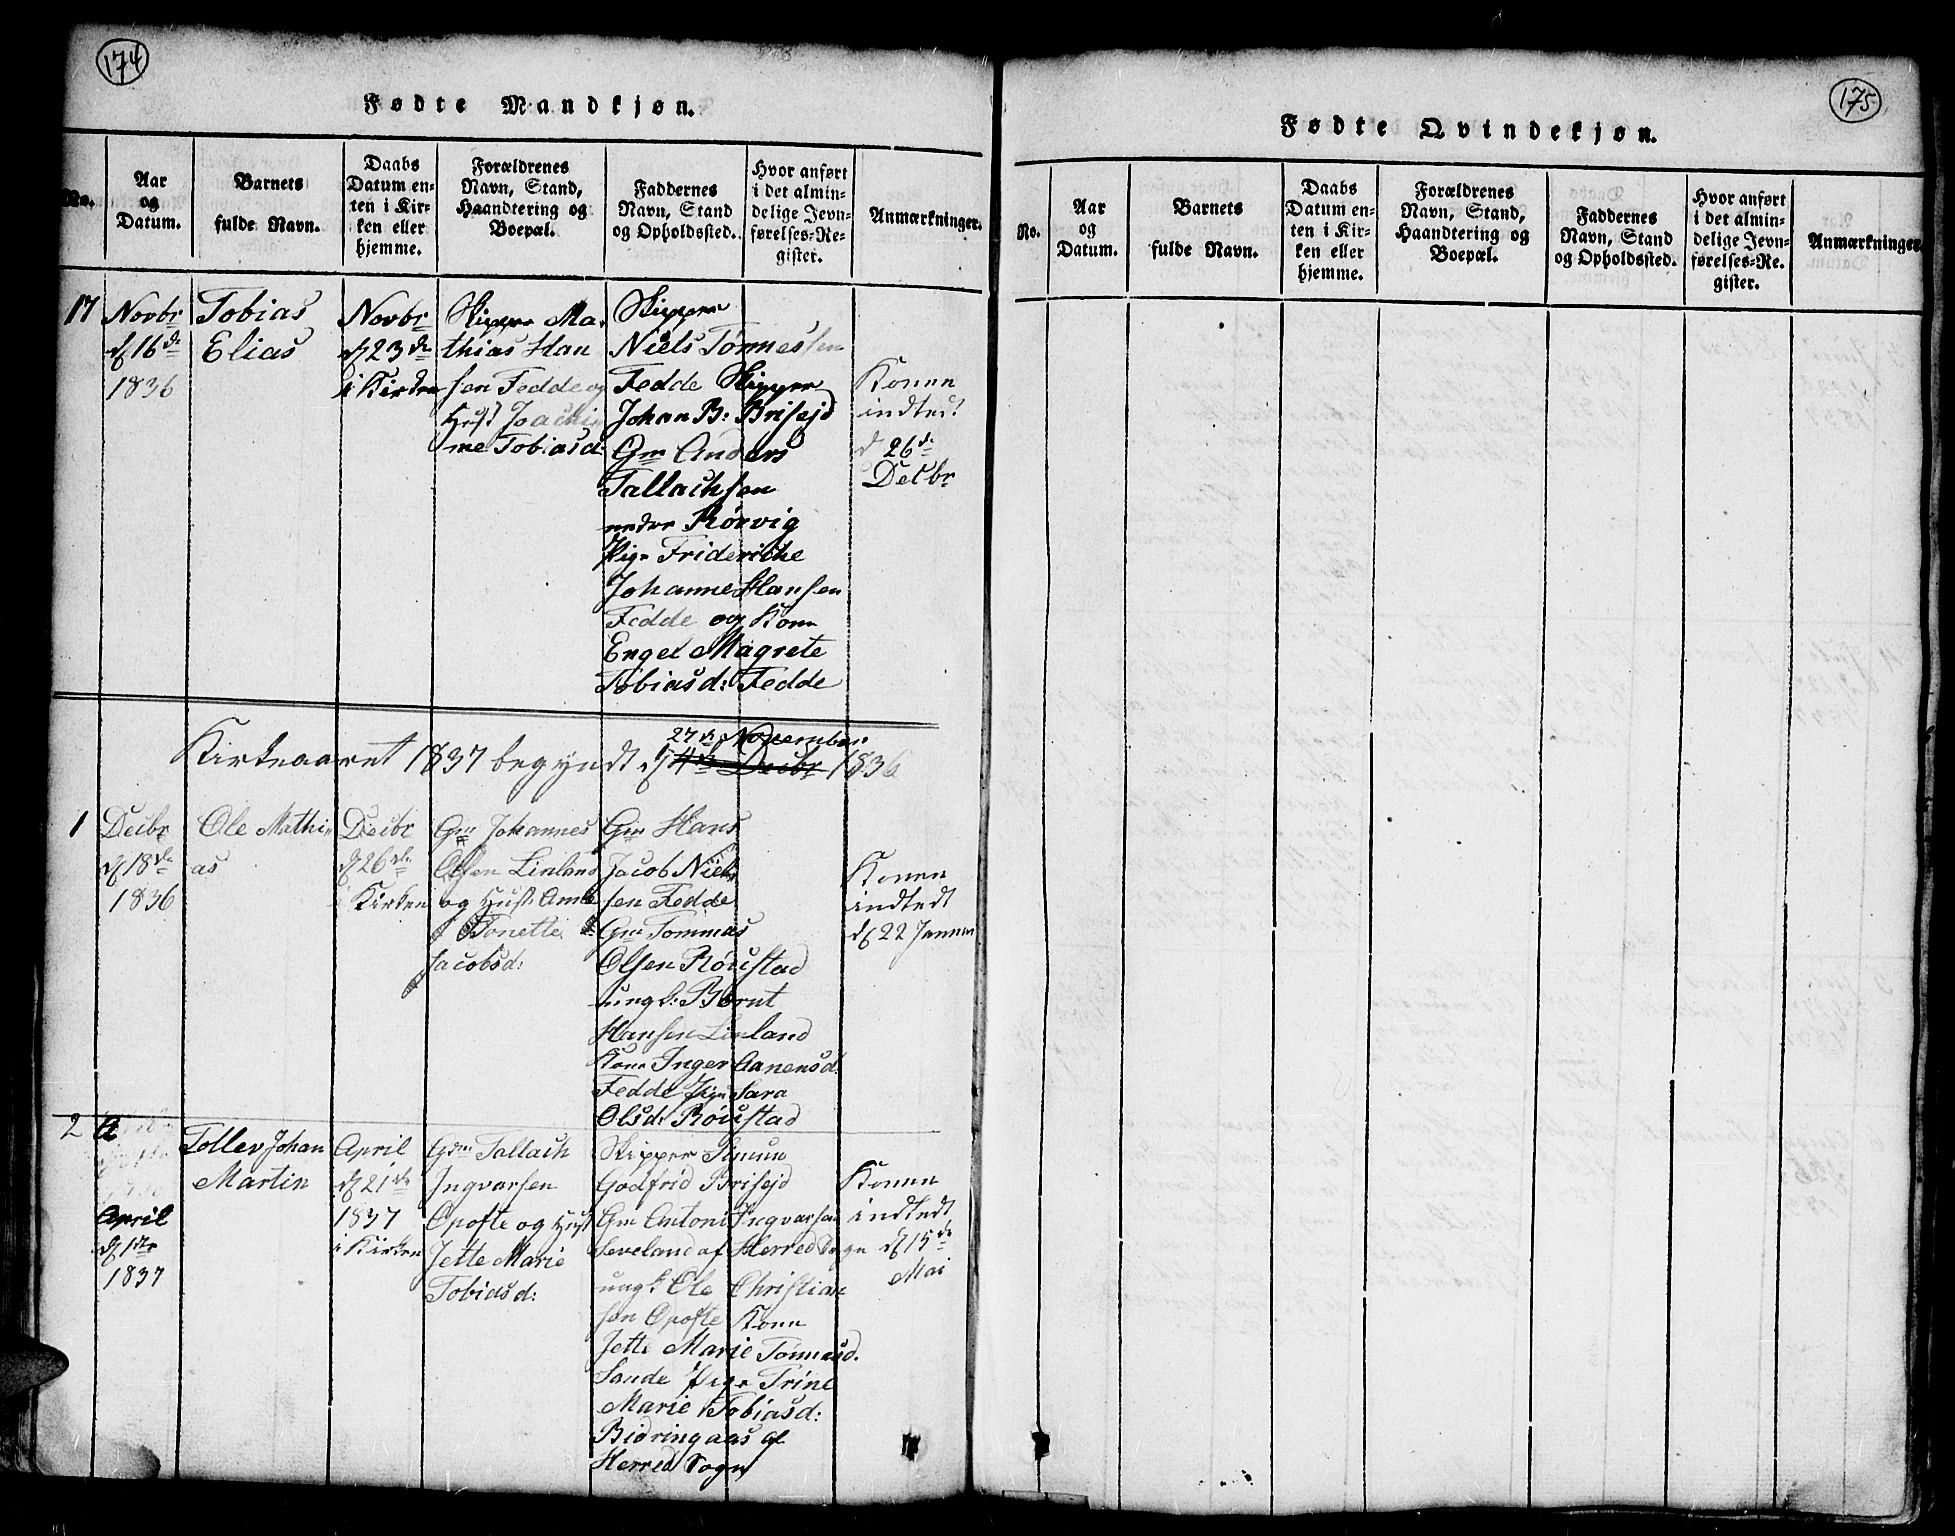 174
Fødte Mandkjøn.
No.
Aar
og
Datum.
Barnets
fulde Navn.
Daabs
Datum en-
ten i Kir-
ken eller
hjemme.
Forældrenes
Navn, Stand,
Haandtering og
Boepæl.
Faddernes
Navn, Stand
og Opholdssted.
Hvor anført
i det almin-
delige Jevn-
førelses-Re-
gister.
Anmærkninger.
17
Novbr
d 16de
1836
Tobias
Elias
Novbr
d 23de
i Kirken
Skipper Ma-
thias Han
sen Fedde og
Hust Joachi
me Tobiasd:
Skipper
Niels Tønnessen
Fedde Skipper
Johan B: Brisejd
Gm Anders
Tallachsen
nedre Rørvig
Pige Friderikke
Johanne Hansen
Fedde og Kone
Engel Magrete
Tobiasd: Fedde
Konen
indted!
d 26de
Decbr
Kirkeaaret 1837 begyndt d 4de Decbr 1836
27de November
1
Decbr
d 18de
1836
Ole Mathi
as
Decbr
d 26de
i Kirken
Gm Johannes
Olsen Linland
og Hust: Anne
Tonette
Jacobsd:
Gm Hans
Jacob Niel
sen Fedde
Gm Tommas
Olsen Røiistad
ungk: Bernt
Hansen Linland
Kone Inger Aanensd:
Fedde Pige Sara
Olsd: Røiistad
Konen
indtedt
d 22 Januar
2
April
d 1ste
1837
Tollev Johan
Martin
April
d 21de
1837
i Kirken
Gdm Tallach
Ingvarsen
Opofte og Hust
Jette Marie
Tobiasd:
Skipper Simun
Godfrid Brisejd
Gm Antoni Ingvarsen
Seveland af Herred Sogn
ungk Ole Christian
sen Opofte Kone
Jette Marie Tønnesd.
Sande Pige Trine
Marie Tobiasd:
Bidringaas af
Herred Sogn
Konen
indtedt
d 15de
Mai
175
Fødte Qvindekjøn.
No.
Aar
og
Datum.
Barnets
fulde Navn.
Daabs
Datum en-
ten i Kir-
ken eller
hjemme.
Forældrenes
Navn, Stand,
Haandtering og
Boepæl.
Faddernes
Navn, Stand
og Opholdssted.
Hvor anført
i det almin-
delige Jevn-
førelses-Re-
gister.
Anmærkninger